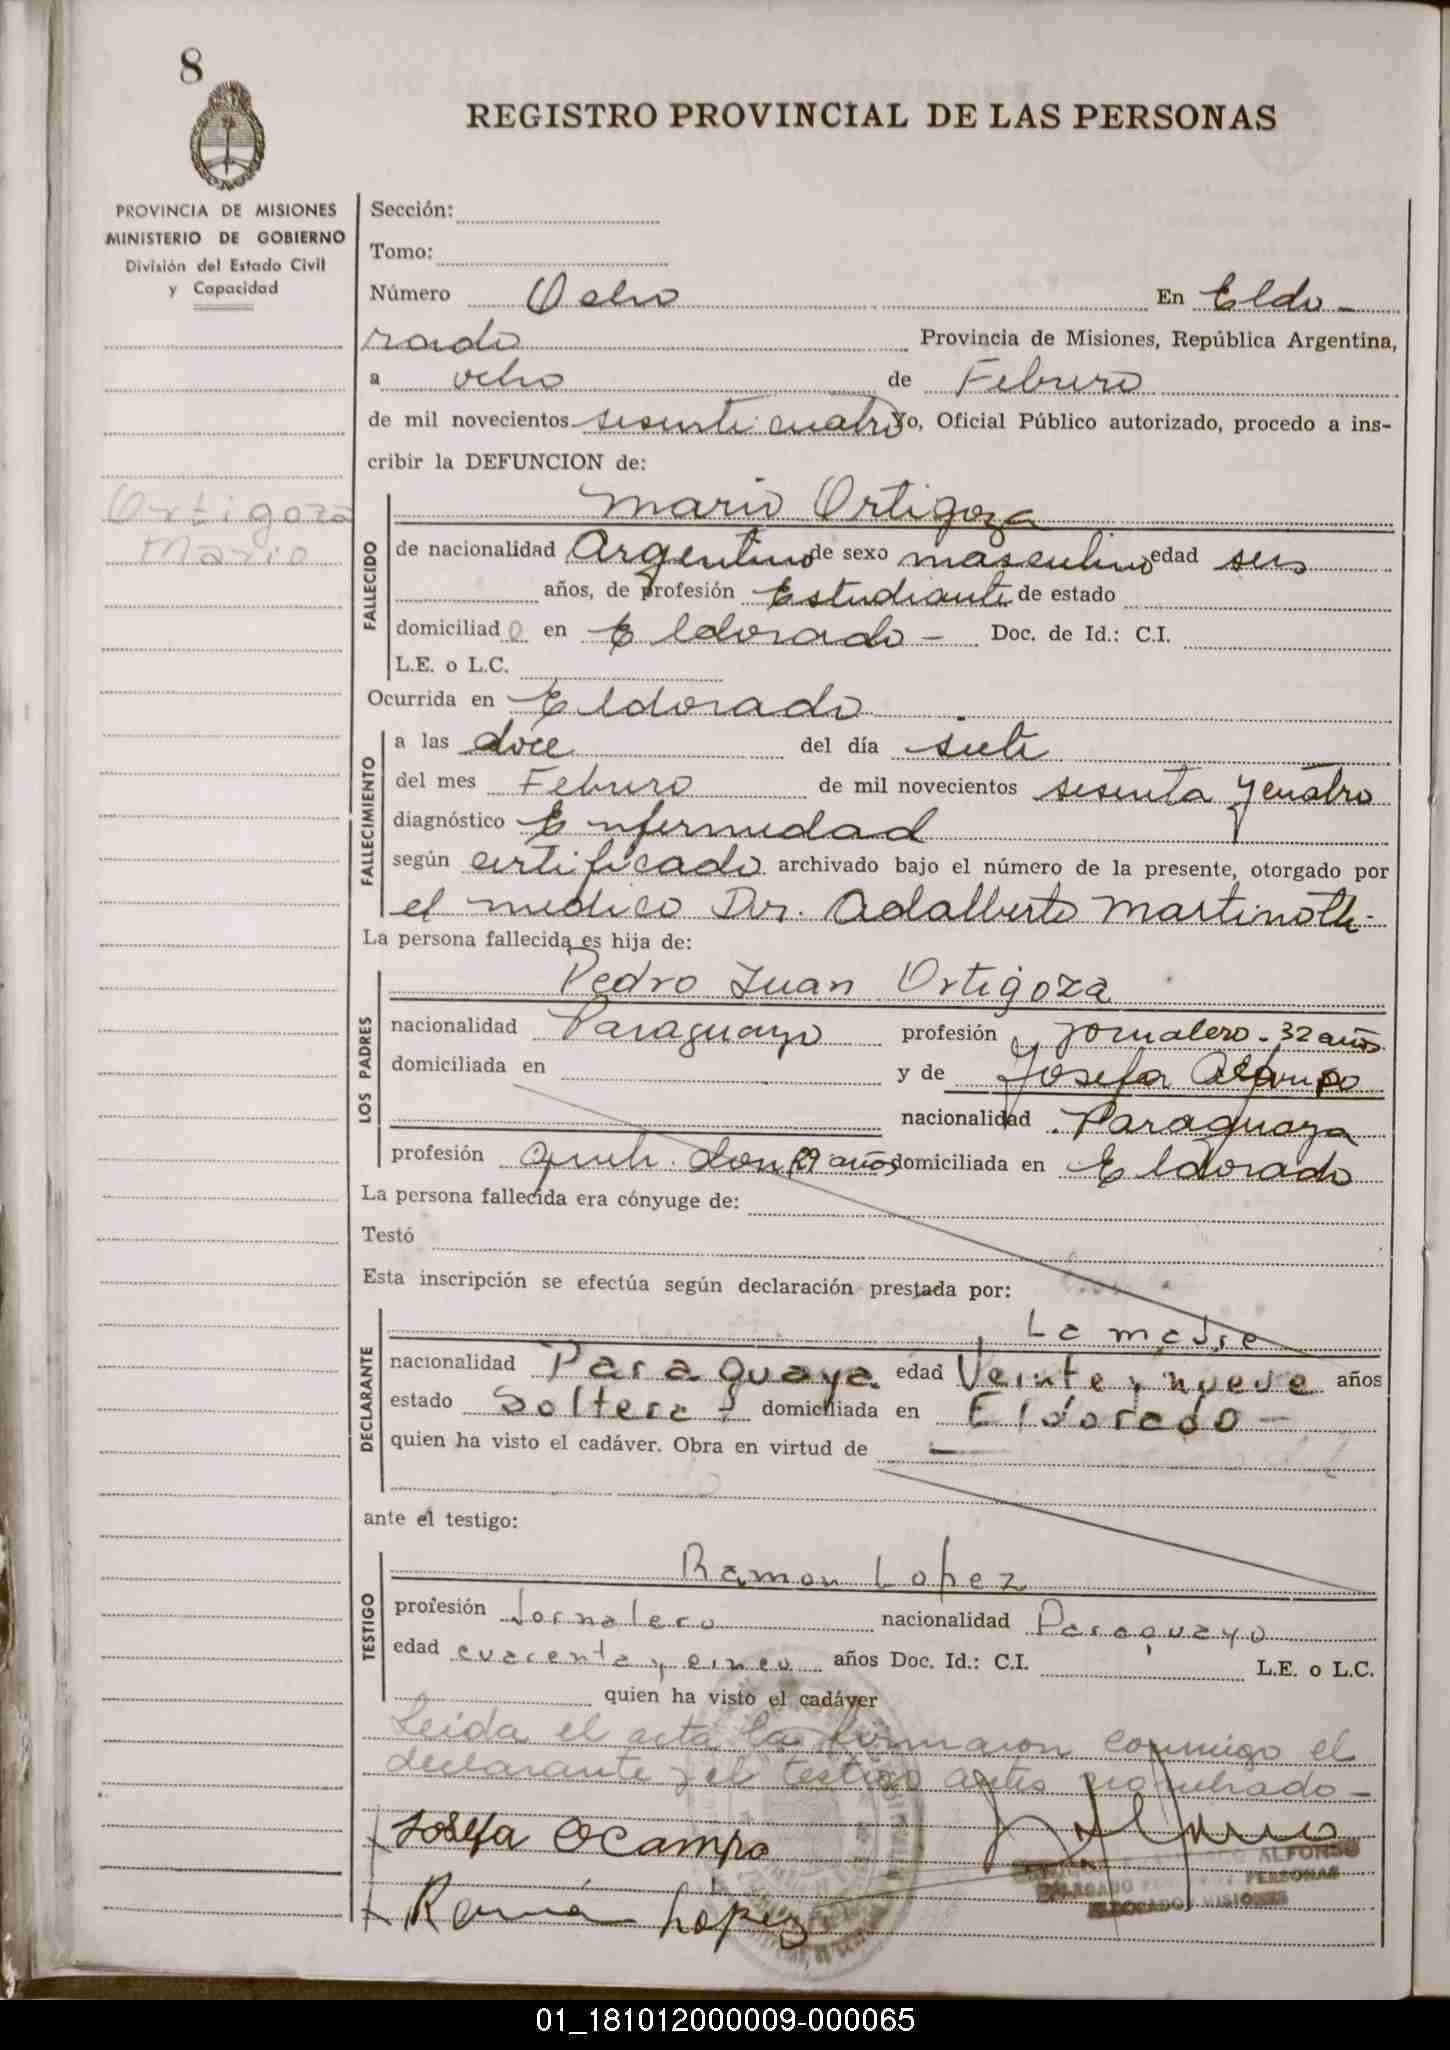 8
REGISTRO PROVINCIAL DE LAS PERSONAS
PROVINCIA DE MISIONES
MINISTERIO DE GOBIERNO
División del Estado Civil
y Capacidad
Ortigoza
Mario
Sección:
Tomo:
Número Ocho En Eldo-
rado Provincia de Misiones, República Argentina,
a ocho de Febrero
de mil novecientos sesenta cuatro Yo, Oficial Público autorizado, procedo a ins-
cribir la DEFUNCION de:
FALLECIDO
Mario Ortigoza
de nacionalidad Argentino de sexo masculino edad seis
años, de profesión Estudiante de estado
domiciliado en Eldorado - Doc. de Id.: C.I.
L.E. o L.C.
Ocurrida en Eldorado
FALLECIMIENTO
a las doce del día siete
del mes Febrero de mil novecientos sesenta y cuatro
diagnóstico Enfermedad
según certificado archivado bajo el número de la presente, otorgado por
el medico Dr. Adalberto Martinotti-
La persona fallecida es hija de:
LOS PADRES
Pedro Juan Ortigoza
nacionalidad Paraguayo profesión Jornalero - 32 años
domiciliada en y de Josefa
nacionalidad Paraguaya
profesión 29 años domiciliada en Eldorado
La persona fallecida era cónyuge de:
Testó
Esta inscripción se efectúa según declaración prestada por:
DECLARANTE
La madre
nacionalidad Paraguaya edad Veinte y nueve años
estado Soltera domiciliada en Eldorado -
quien ha visto el cadáver. Obra en virtud de -
ante el testigo:
TESTIGO
Ramon Lopez
profesión Jornalero nacionalidad Paraguayo
edad cuarenta y cinco años Doc. Id.: C.I. L.E. o L.C.
quien ha visto el cadáver
Leida el acta la firmaron conmigo el
declarante y el testigo antes nombrado -
Josefa Ocampo
ALFONSO
DELEGADO PERSONAS
ELDORADO MISIONES
Ramón López
01_181012000009-000065